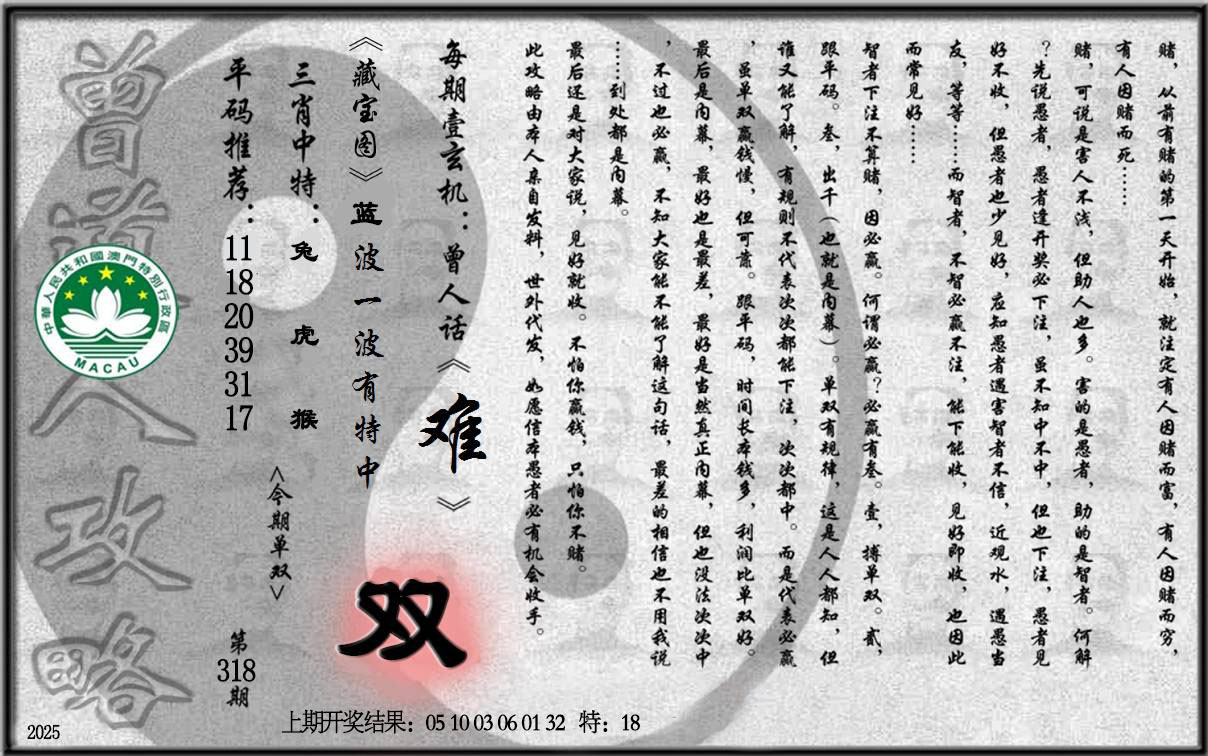 赌，从前有赌的第一天开始，就注定有人因赌而富，有人因赌而穷，
有人因赌而死……
赌，可说是害人不浅，但助人也多。害的是愚者，助的是智者。何解
？先说愚者，愚者逢开奖必下注，虽不知中不中，但也下注，愚者见
好不收，但愚者也少见好，应知愚者遇害智者不信，近观水，遇愚当
友，等等……而智者，不智必赢不注，能下能收，见好即收，也因此
而常见好……
智者下注不算赌，因必赢。何谓必赢？必赢有叁。壹，搏单双。贰，
跟平码。叁，出千（也就是内幕）。单双有规律，这是人人都知，但
谁又能了解，有规则不代表次次都能下注，次次都中。而是代表必赢
，虽单双赢钱慢，但可靠。跟平码，时间长本钱多，利润比单双好。
最后是内幕，最好也是最差，最好是当然真正内幕，但也没法次次中
，不过也必赢，不知大家能不能了解这句话，最差的相信也不用我说
……到处都是内幕。
最后还是对大家说，见好就收。不怕你赢钱，只怕你不赌。
此攻略由本人亲自发料，世外代发，如愿信本愚者必有机会收手。
每期壹玄机：曾人话《难》
《藏宝图》蓝波一波有特中
双
三肖中特：兔虎猴
<今期单双>
平码推荐：11 18 20 39 31 17
第318期
曾道人攻略
中華人民共和國澳門特別行政區
MACAU
上期开奖结果：05 10 03 06 01 32 特：18
2025